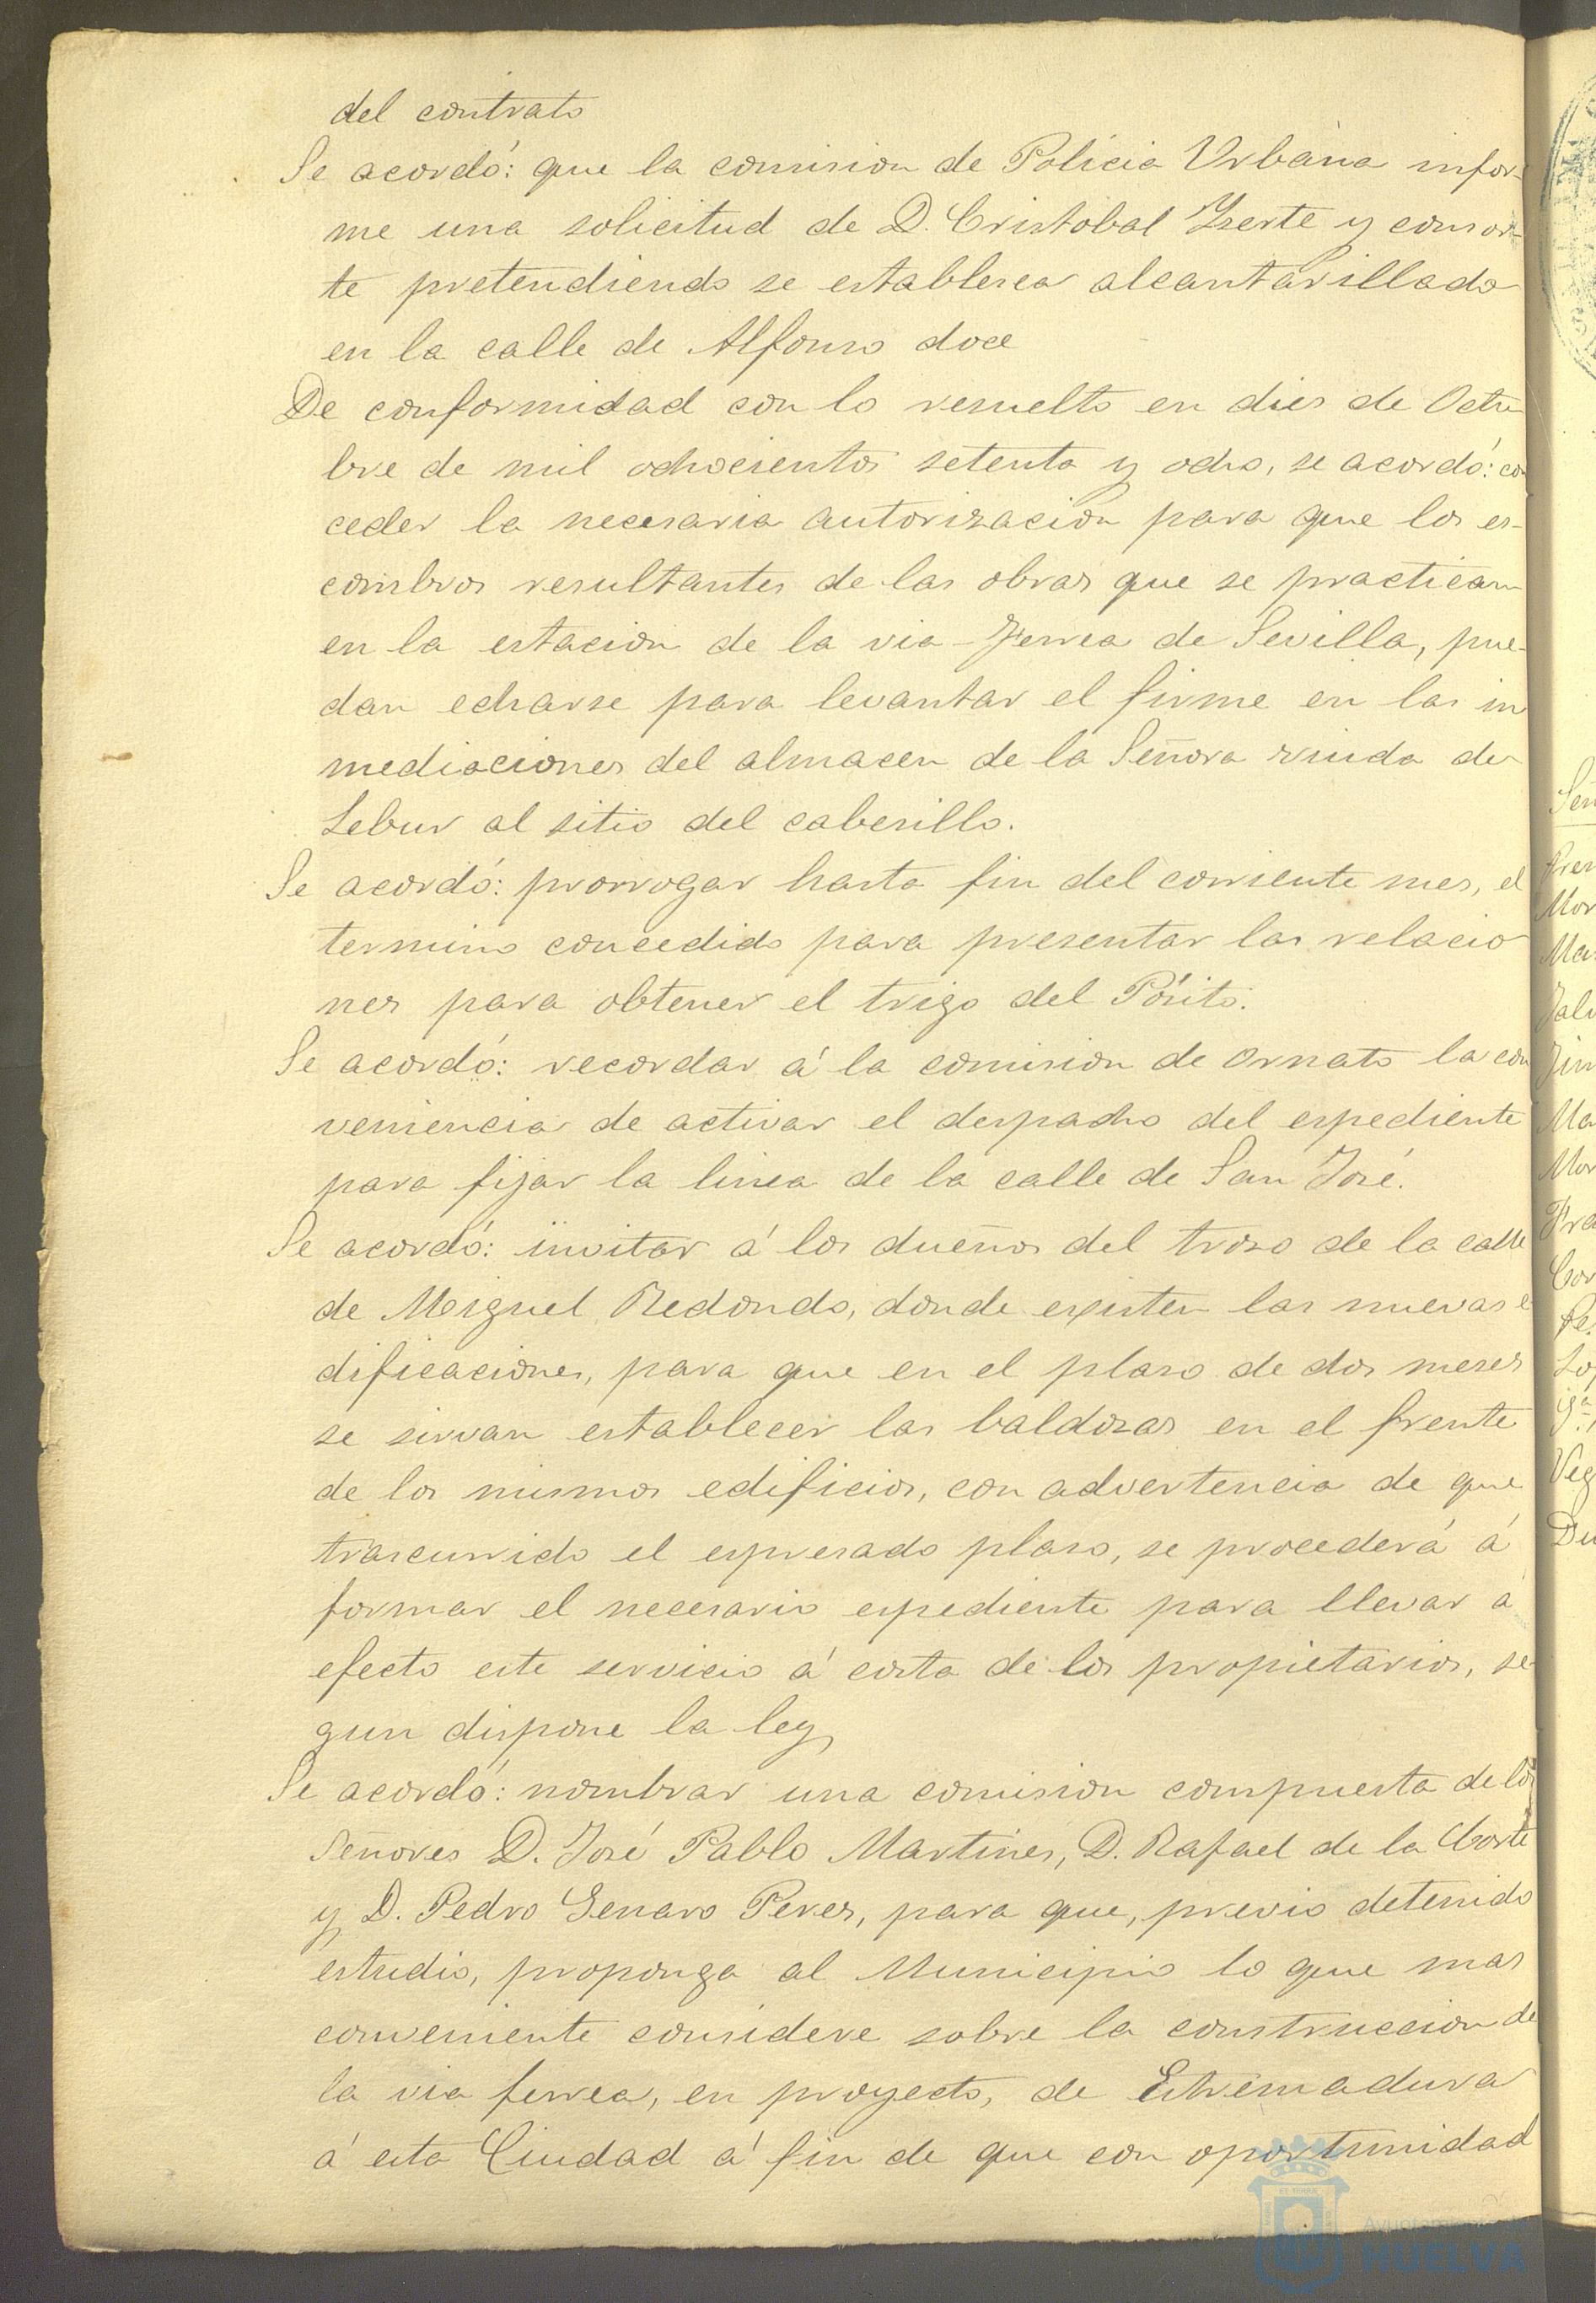 del contrato
Se acordó: que la comision de Policia Urbana infor-
me una solicitud de D. Cristobal Yserte y consor-
te pretendiendo se establesca alcantarillado
en la calle de Alfonso doce
De conformidad con lo resuelto en dies de Octu
bre de mil ochocientos setenta y ocho, se acordó: con
ceder la necesaria autorizacion para que los es-
combros resultantes de las obras que se practican
en la estacion de la via-ferrea de Sevilla, pue-
dan echarse para levantar el firme en las in
mediaciones del almacen de la Señora viuda de
al sitio del cabesillo.
Se acordó: prorrogar hasta fin del corriente mes, el
termino concedido para presentar las relacio
nes para obtener el trigo del Pósito.
Se acordó: recordar á la comision de ornato la con
veniencia de activar el despacho del espediente
para fijar la linea de la calle de San José.
Se acordó: invitar á los dueños del troso de la calle
de Miguel Redondo, donde existen las nuevas e
dificaciones, para que en el plaso de dos meses
se sirvan establecer las baldosas en el frente
de los mismos edificios, con advertencia de que
trascurrido el espresado plaso, se procederá á
formar el necesario espediente para llevar á
efecto este servicio á costa de los propietarios, se-
gun dispone la ley
Se acordó: nombrar una comision compuesta de los
Señores D. José Pablo Martines, D. Rafael de la Corte
y D. Pedro Genaro Peres, para que, previo detenido
estudio, proponga al Municipio lo que mas
conveniente considere sobre la construccion de
la via ferrea, en proyecto, de Estremadura
á esta Ciudad á fin de que con oportunidad
Ayuntamiento de
HUELVA